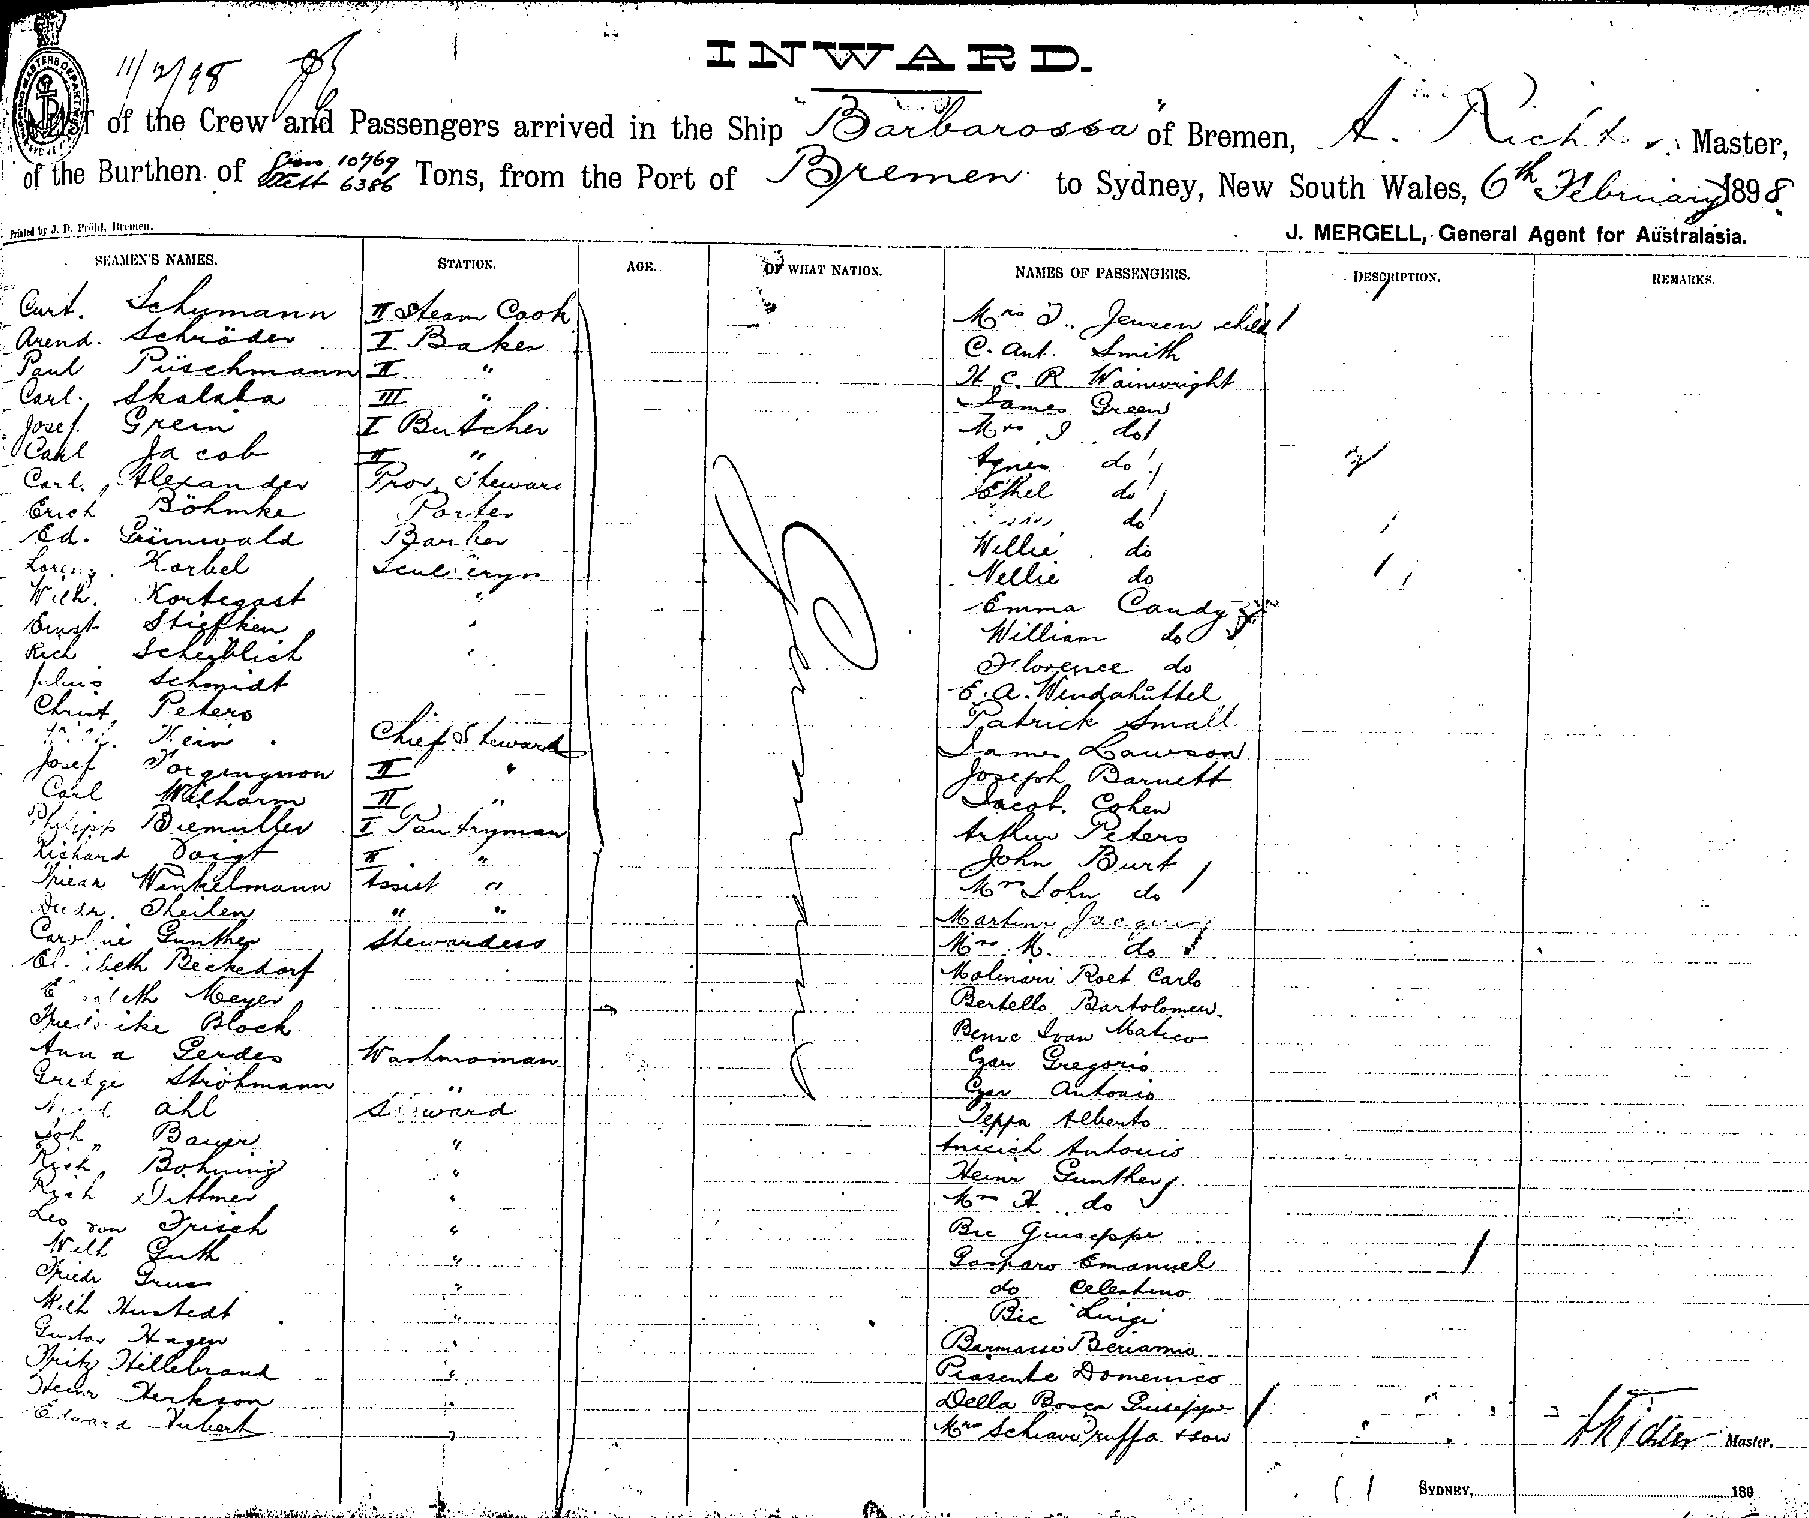 11/2/98
INWARD.
of the Crew and Passengers arrived in the Ship "Barbarossa" of Bremen, A. Richter Master,
of the Burthen of Gross 10769 Nett 6386 Tons, from the Port of Bremen to Sydney, New South Wales, 6th February 1898.
Printed by J. D. Pröhl, Bremen.
J. MERGELL, General Agent for Australasia.
SEAMEN'S NAMES. STATION. AGE. OF WHAT NATION. NAMES OF PASSENGERS. DESCRIPTION. REMARKS.
German
Curt. Schumann II Steam Cook Mrs J. Jensen child
Arend. Schröder I Baker C. Ant. Smith
Paul Püschmann II " H C. R. Wainwright
Carl. Skalaba III " James Green
Josef Grein I Butcher Mrs J. do
Carl Jacob II " Agnes do
Carl. Alexander Prov. Steward Ethel do
Erich Böhmke Porter do
Ed. Grünwald Barber Willie do
Lorenz. Korbel Nellie do
Wilh. Kortegast " Emma Candy
Ernst Stiefken " William do
Rich Scheiblich " Florence do
Julius Schmidt E. A. Windshüttel
Christ. Peters Patrick Small
Hein Chief Steward James Lawson
Josef II " Joseph Barnett
Carl Wilharm II " Jacob. Cohen
Philipp Biemüller I Pantryman Arthur Peters
Richard Voigt II " John Burt
Winkelmann Assist " Mrs John do
Theilen " " Martin Jacques
Caroline Gunther Stewardess Mrs M. do
Elisabeth Beckedorf Molinari Roet Carlo
Elisabeth Meyer Bertello Bartolomeu.
Friederike Block Benic Ivan Matico
Anna Gerdes Washwoman Czar Gregorio
Gretge Ströhmann " Czar Antonio
Ahl Steward Peppa Alberto
Joh, Bauer " Antonio
Rich, Bohning " Heinr Gunther
Rich Dittmer " Mrs H. do
Leo von Frisch " Bic Giuseppe
Wilh Guth " Gasparo Emanuel
Friedr Grus " do Celestino
Wilh Hustedt " Bic Luigi
Gustav Hagen " Barmasse Beriamio
Fritz Hillebrand " Piasente Domenico
Heinr Herkson " Della Bosca Guiseppe
Edward Hubert " Mrs Schiavi Truffa & son
Master.
SYDNEY, 189